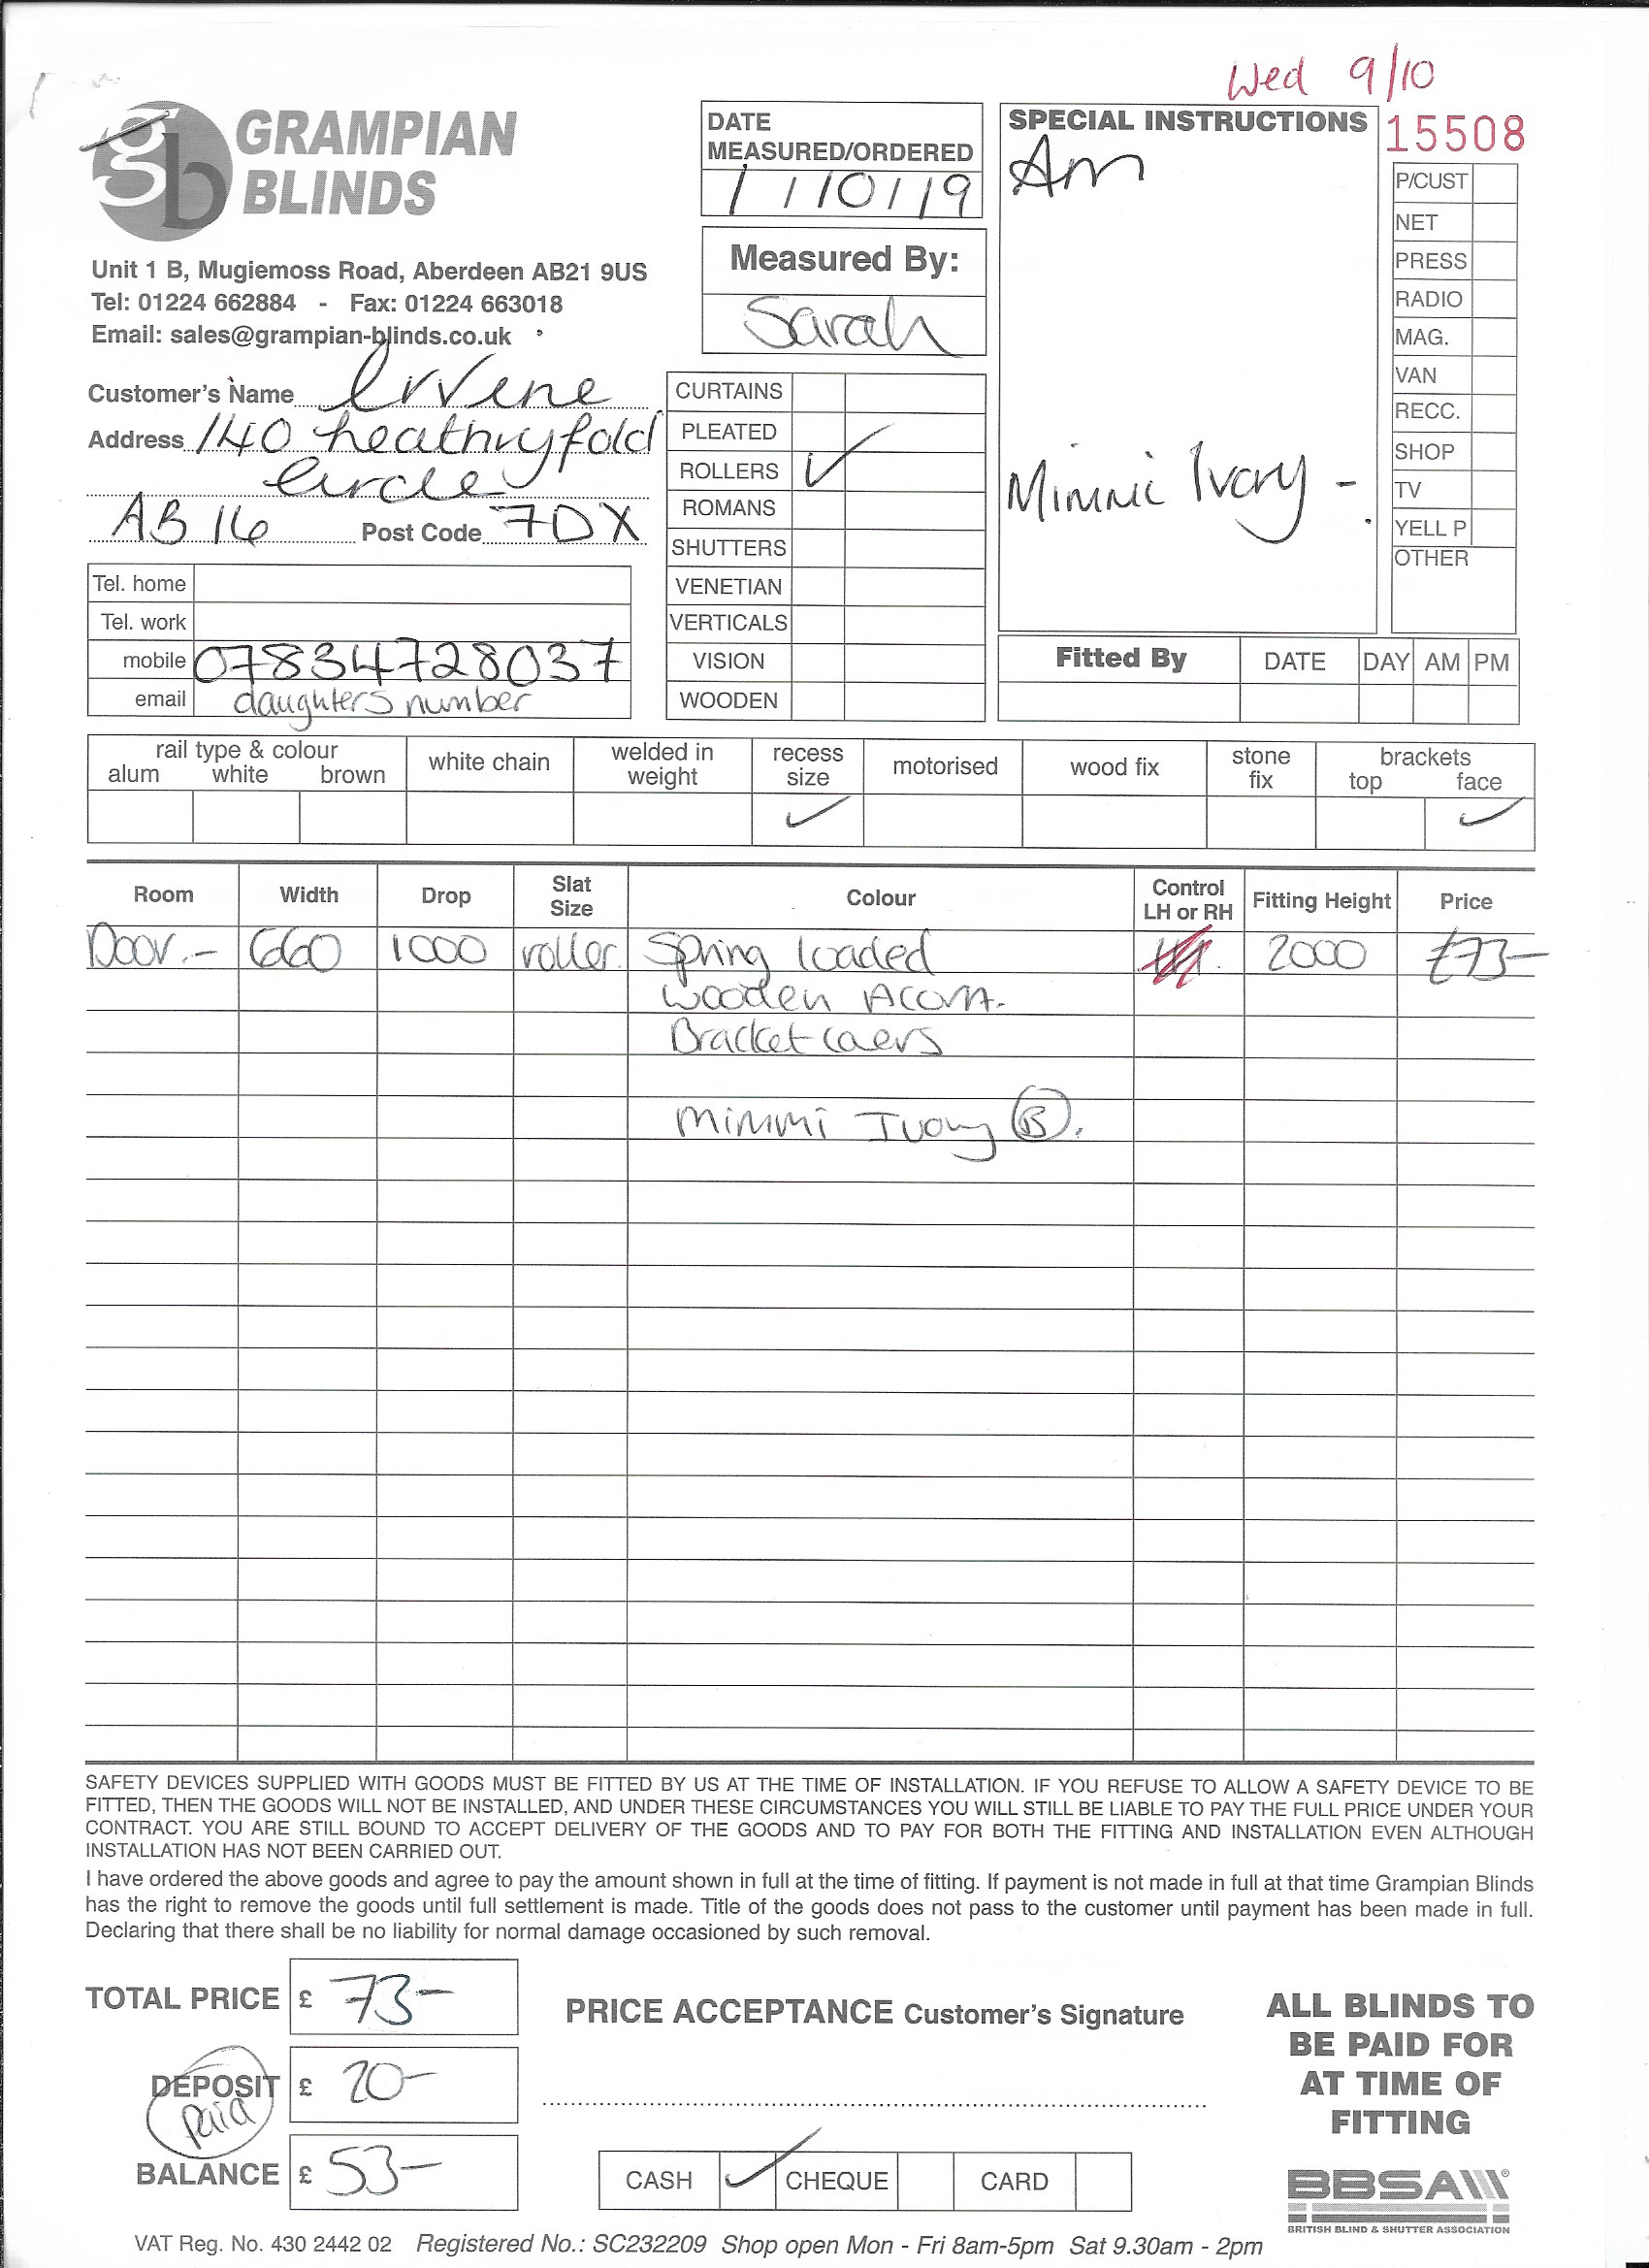 Wed 9/10
GRAMPIAN
BLINDS
Unit 1 B, Mugiemoss Road, Aberdeen AB21 9US
Tel: 01224 662884 - Fax: 01224 663018
Email: sales@grampian-blinds.co.uk
DATE
MEASURED/ORDERED
1/10/19
Measured By:
Sarah
SPECIAL INSTRUCTIONS
Am
Mimmic Ivory -
15508
P/CUST
NET
PRESS
RADIO
MAG.
VAN
RECC.
SHOP
TV
YELL P
OTHER
Customer's Name Irvene
Address 140 heathryfold
Circle
AB 16 Post Code 7DX
Tel. home
Tel. work
mobile 07834728037
email daughters number
CURTAINS
PLEATED
ROLLERS ✓
ROMANS
SHUTTERS
VENETIAN
VERTICALS
VISION
WOODEN
Fitted By DATE DAY AM PM
rail type & colour
alum white brown
white chain
welded in
weight
recess
size
✓
motorised
wood fix
stone
fix
brackets
top face
✓
Room Width Drop Slat Size Colour Control LH or RH Fitting Height Price
Door.- 660 1000 roller. Spring loaded 2000 £73-
wooden Acorn.
Bracket covers
Mimmi Ivory B.
SAFETY DEVICES SUPPLIED WITH GOODS MUST BE FITTED BY US AT THE TIME OF INSTALLATION. IF YOU REFUSE TO ALLOW A SAFETY DEVICE TO BE
FITTED, THEN THE GOODS WILL NOT BE INSTALLED, AND UNDER THESE CIRCUMSTANCES YOU WILL STILL BE LIABLE TO PAY THE FULL PRICE UNDER YOUR
CONTRACT. YOU ARE STILL BOUND TO ACCEPT DELIVERY OF THE GOODS AND TO PAY FOR BOTH THE FITTING AND INSTALLATION EVEN ALTHOUGH
INSTALLATION HAS NOT BEEN CARRIED OUT.
I have ordered the above goods and agree to pay the amount shown in full at the time of fitting. If payment is not made in full at that time Grampian Blinds
has the right to remove the goods until full settlement is made. Title of the goods does not pass to the customer until payment has been made in full.
Declaring that there shall be no liability for normal damage occasioned by such removal.
TOTAL PRICE £ 73-
DEPOSIT £ 20-
paid
BALANCE £ 53-
PRICE ACCEPTANCE Customer's Signature
CASH ✓ CHEQUE CARD
ALL BLINDS TO
BE PAID FOR
AT TIME OF
FITTING
BBSA
BRITISH BLIND & SHUTTER ASSOCIATION
VAT Reg. No. 430 2442 02 Registered No.: SC232209 Shop open Mon - Fri 8am-5pm Sat 9.30am - 2pm